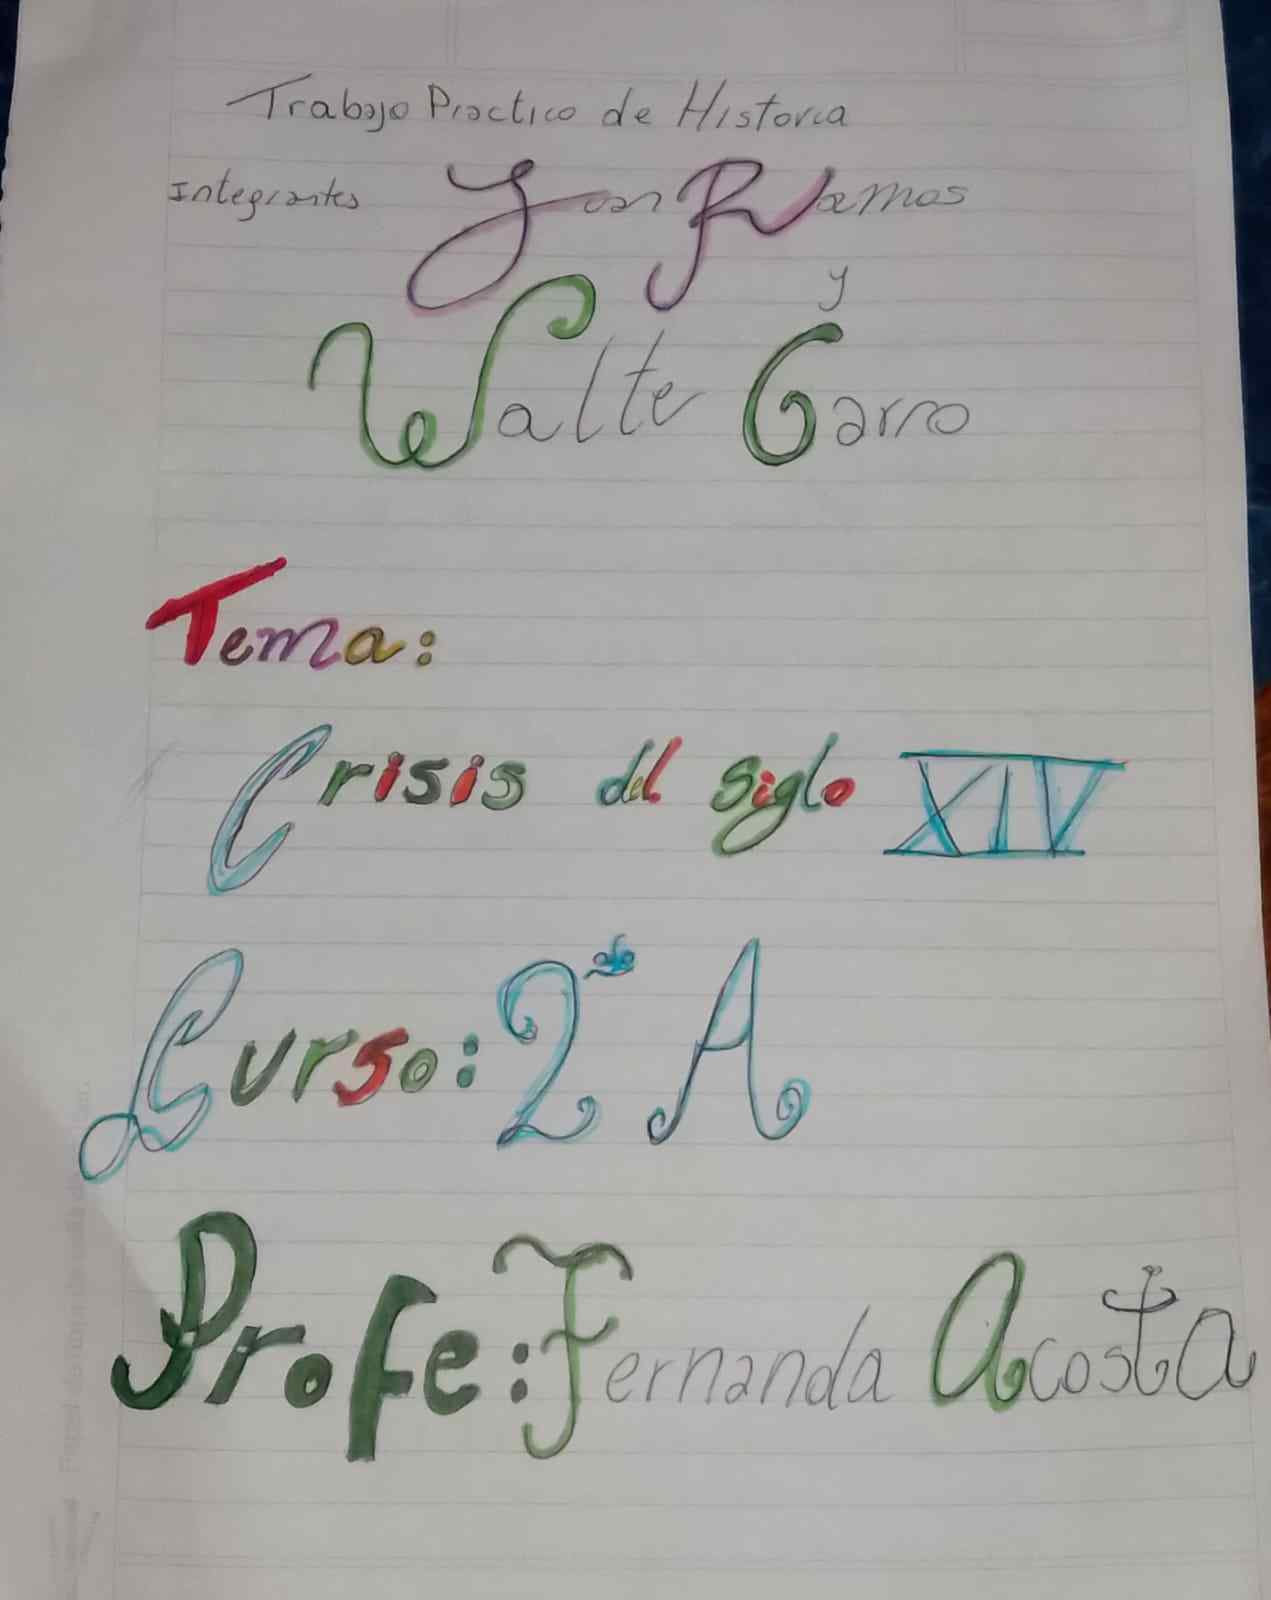 Trabajo Practico de Historia
Integrantes Joan Ramos
y
Walter Garro
Tema:
Crisis del siglo XIV
Curso: 2do A
Profe: Fernanda Acosta